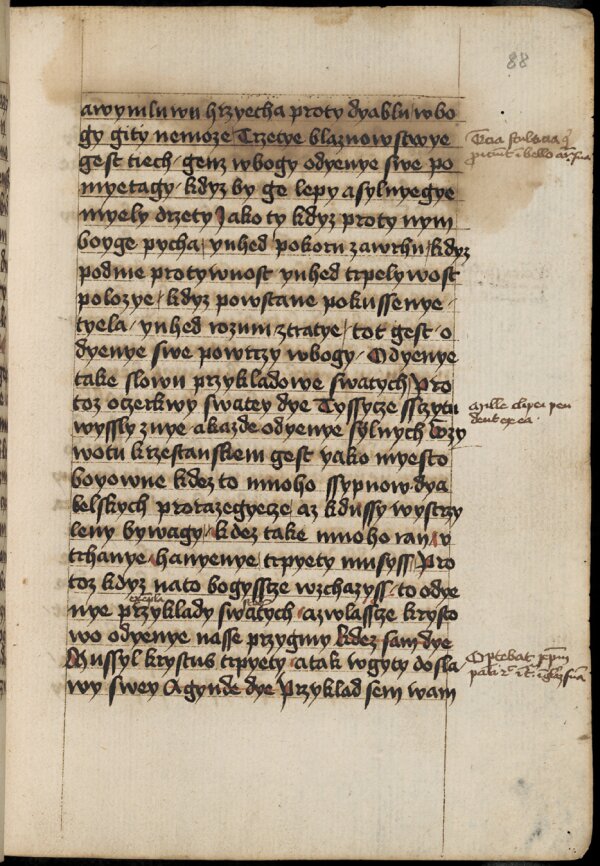 88
awymluwu hrzyecha proty dyablu wbo
gy gity nemoze Trzetye blaznowstwye
gest tiech genz wbogy odyenye swe po
myetagy kdyz by ge lepy a sylnyegye
myely drzety Jako ty kdyz proty nym
boyge pycha ynhed pokoru zawrhu kdyz
podnie protywnost ynhed trpelywost
polozye kdyz powstane pokussenye
tyela ynhed rozum ztratye tot gest o
dyenye swe powrzy wbogy Odyenye
take slowu przykladowe swatych Pro
toz oczerkwy swatey dye Tyssycze ssczytu
wyssly znye akazde odyenye sylnych Tozy
wotu krzestanskiem gest yako myesto
boyowne kdez to mnoho ssypnow dya
belskych protazegyecze az kdussy wystrzy
leny bywagy kdez take mnoho ran y
trhanye hanyenye trpyety musyss Pro
toz kdyz nato bogyssze wzchazyss to odye
nye przyklady swatych azwlassze krysto
wo odyenye nasse przygmy kdez sam dye
Mussyl krystus trpyety atak wgyty dosla
wy swey Agynde dye Przyklad sem wam
Mille clipei pen
dent ex ea
Optebat